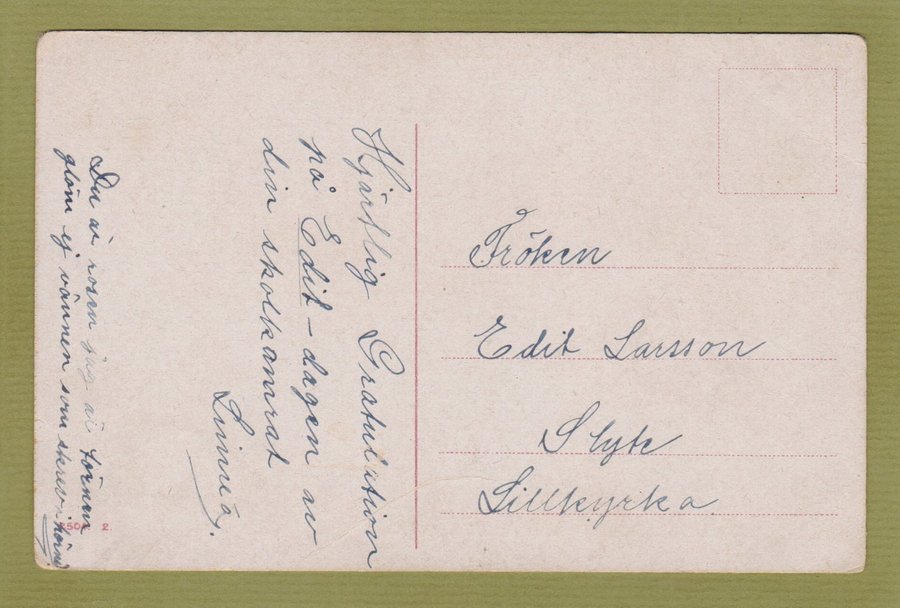 Hjärtlig Gratulation
på Edit-dagen av
din skolkamrat
Linnéa.
Du är rosen jag är törnen
glöm ej vännen som skrev i hörnet
Fröken
Edit Larsson
Slyte
Lillkyrka
2.